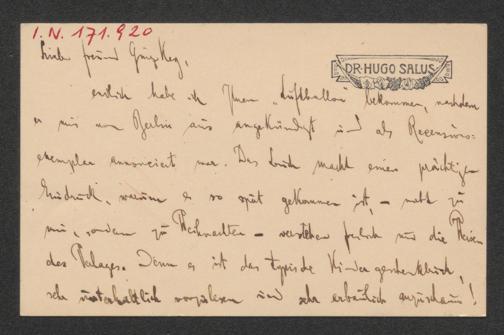 I.N. 171.920
DR. HUGO SALUS
Lieber Freund Ginzkey,
endlich habe ich Ihren „Luftballon“ bekommen, nachdem
er mir von Berlin aus angekündigt und als Recensions-
exemplar annonciert war. Das Buch macht einen prächtigen
Eindruck, warum es so spät gekommen ist, – nicht zu
mir, sondern zu Weihnachten – verstehen freilich nur die Weisen
des Verlages. Denn es ist das typische Kindergeschenkbuch,
sehr unterhaltlich vorzulesen und sehr erbaulich anzuschaun!